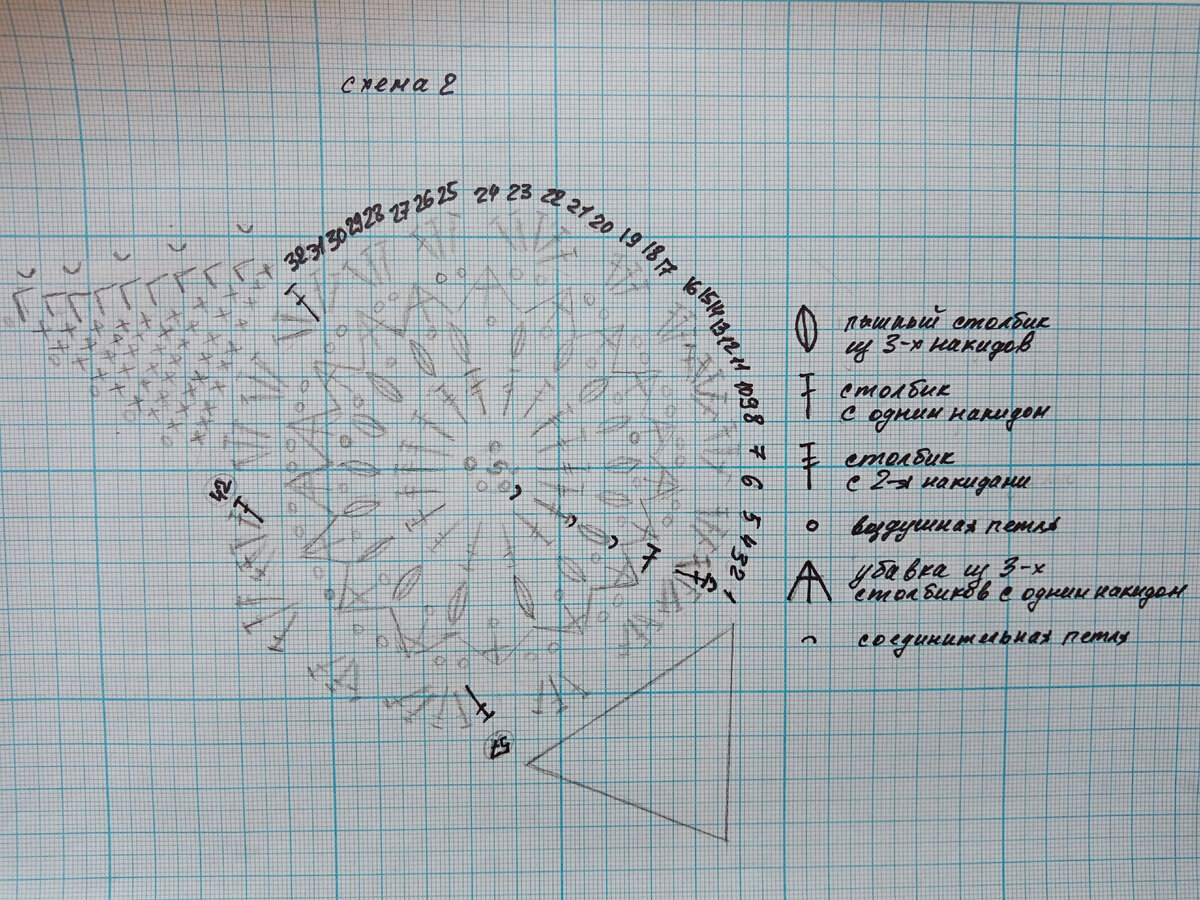 схема 2
32 31 30 29 28 27 26 25 24 23 22 21 20 19 18 17 16 15 14 13 12 11 10 9 8 7 6 5 4 3 2 1
42
57
5
пышный столбик
из 3-х накидов
столбик
с одним накидом
столбик
с 2-я накидами
воздушная петля
убавка из 3-х
столбиков с одним накидом
соединительная петля